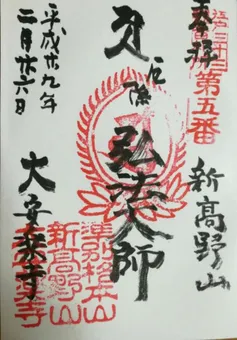 奉拝
江戸三十三
第五番
新高野山
厄除
弘法大師
大安楽寺
平成廿九年
二月廿六日
準別格本山
新高野山
大安楽寺